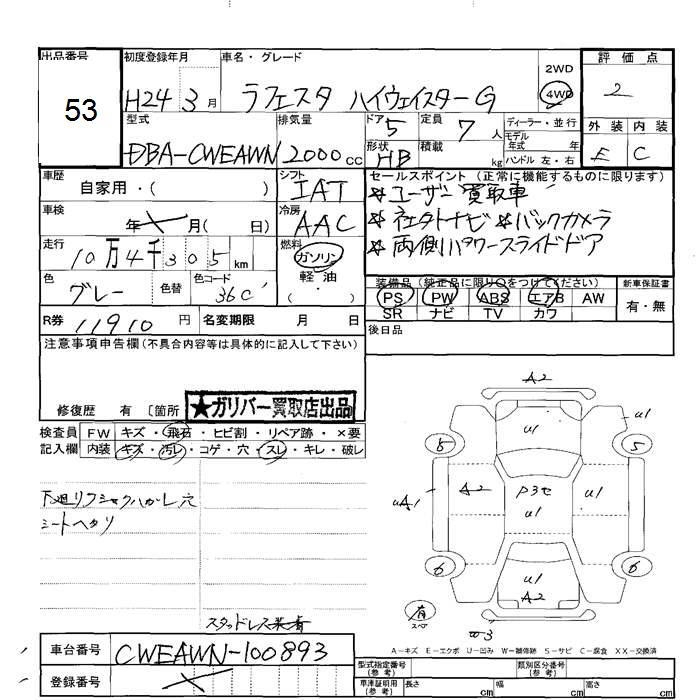 出品番号 初度登録年月 車名・グレード 評価点
53
H24 3月 ラフェスタ ハイウェイスターG 2WD 4WD 2
型式 排気量 ドア 5 定員 7人 ディーラー・並行 外装 内装
DBA-CWEAWN 2000cc 形状 HB 積載 kg モデル年式 年 ハンドル 左・右 E C
車歴 自家用・( ) シフト IAT セールスポイント(正常に機能するものに限ります)
＊ユーザー買取車
車検 年 月( 日) 冷房 AAC ＊社外ナビ ＊バックカメラ
＊両側パワースライドドア
走行 10万4千305km 燃料 ガソリン 軽・油 ( ・ )
色 グレー 色替 色コード 36C
装備品(純正品に限り○をつけてください) 新車保証書
PS PW ABS エアB AW 有・無
SR ナビ TV カワ
R券 11910円 名変期限 月 日 後日品
注意事項申告欄(不具合内容等は具体的に記入して下さい)
修復歴 有 〔箇所
★ガリバー買取店出品
検査員記入欄 FW キズ・飛石・ヒビ割・リペア跡・×要
内装 キズ・汚レ・コゲ・穴・スレ・キレ・破レ
下廻りフシャクハかし穴
シートヘタリ
スタッドレス装着
A2
u1
u1
5
8
uA1
A2
P3セ
u1
u1
6
6
u1
A2
有
スペア
W3
A－キズ E－エクボ U－凹み W－補修跡 S－サビ C－腐食 XX－交換済
車台番号 CWEAWN-100893
登録番号
型式指定番号(参考) 類別区分番号(参考)
車庫証明用(参考) 長さ cm 幅 cm 高さ cm